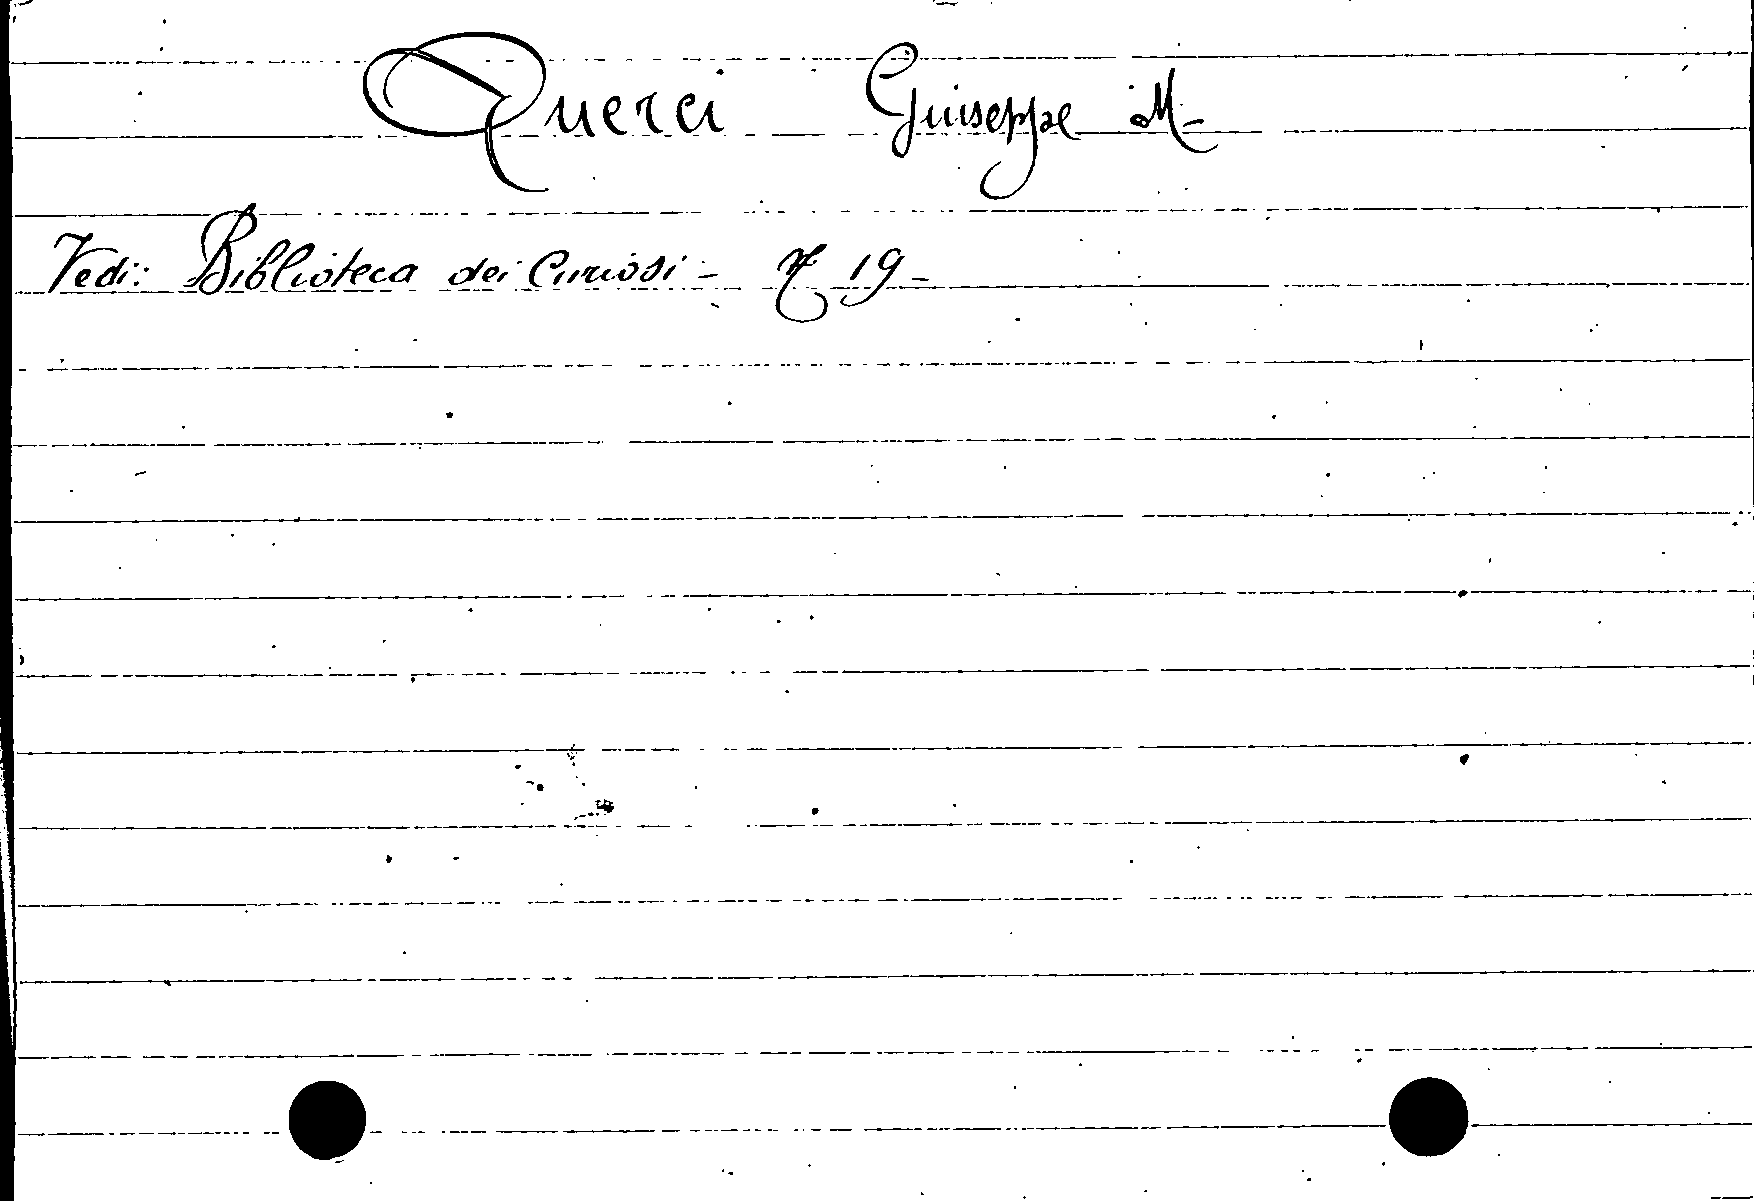 Querci Giuseppe M-
Vedi: Biblioteca dei Curiosi - N 19-